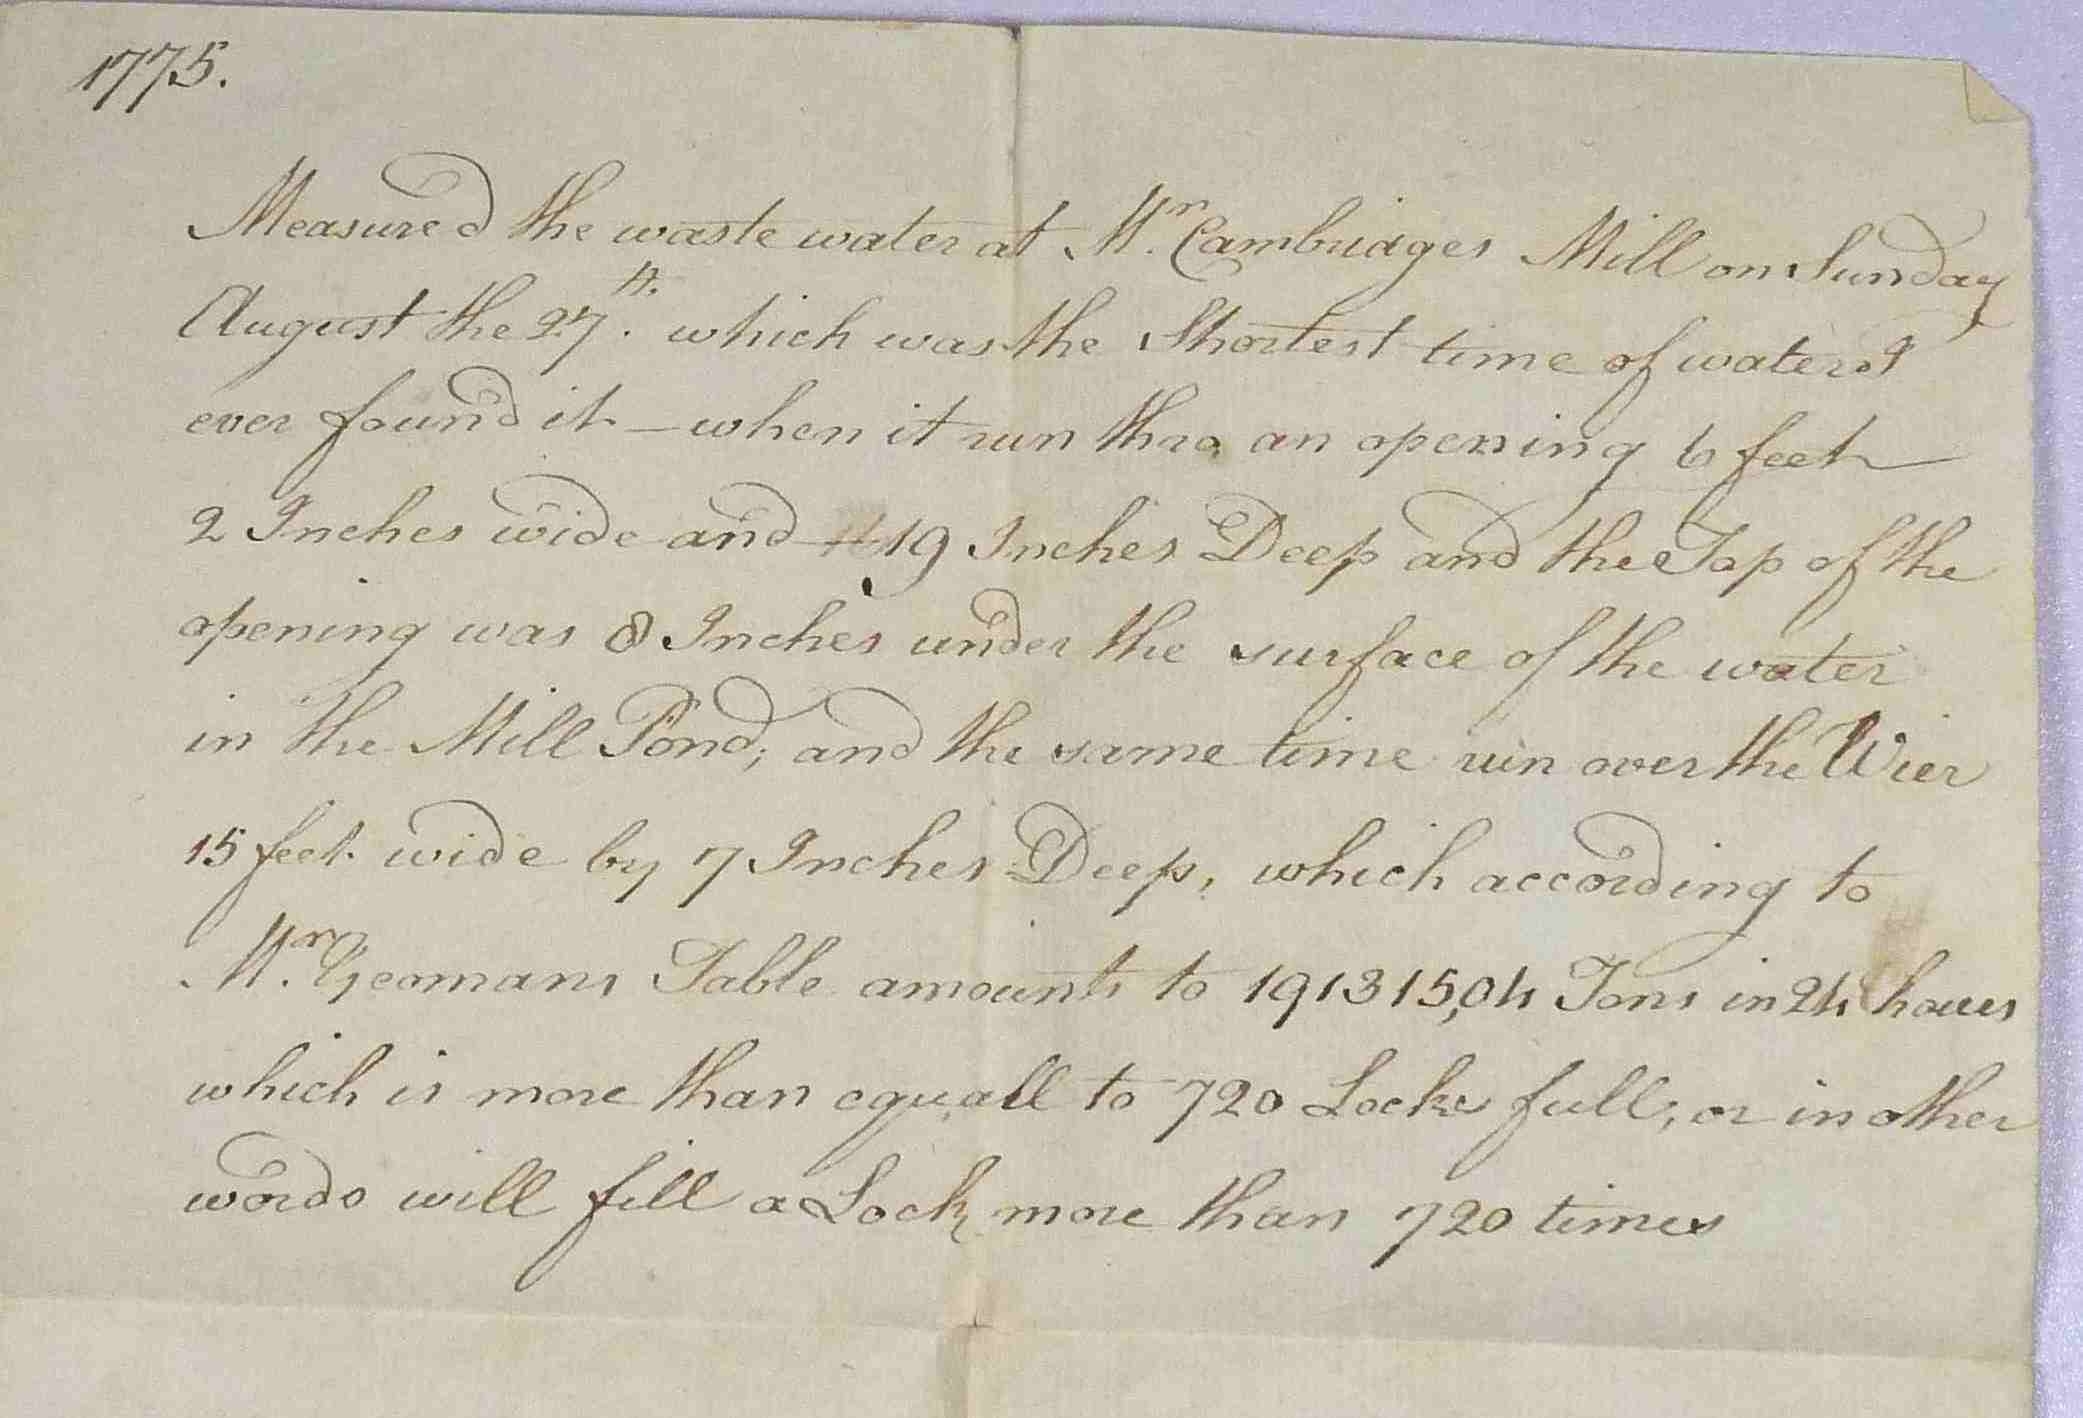 1775.
Measured the waste water at Mr. Cambridges Mill on Sunday
August the 27th. which was the Shortest time of water I
ever found it – when it run thro an opening 6 feet
2 Inches wide and 19 Inches Deep and the Top of the
opening was 8 Inches under the surface of the water
in the Mill Pond; and the same time run over the Wier
15 feet wide by 7 Inches Deep, which according to
Mr. Yeomans Table amounts to 191315,04 Tons in 24 hours
which is more than equall to 720 Locks full, or in other
words will fill a Lock more than 720 times